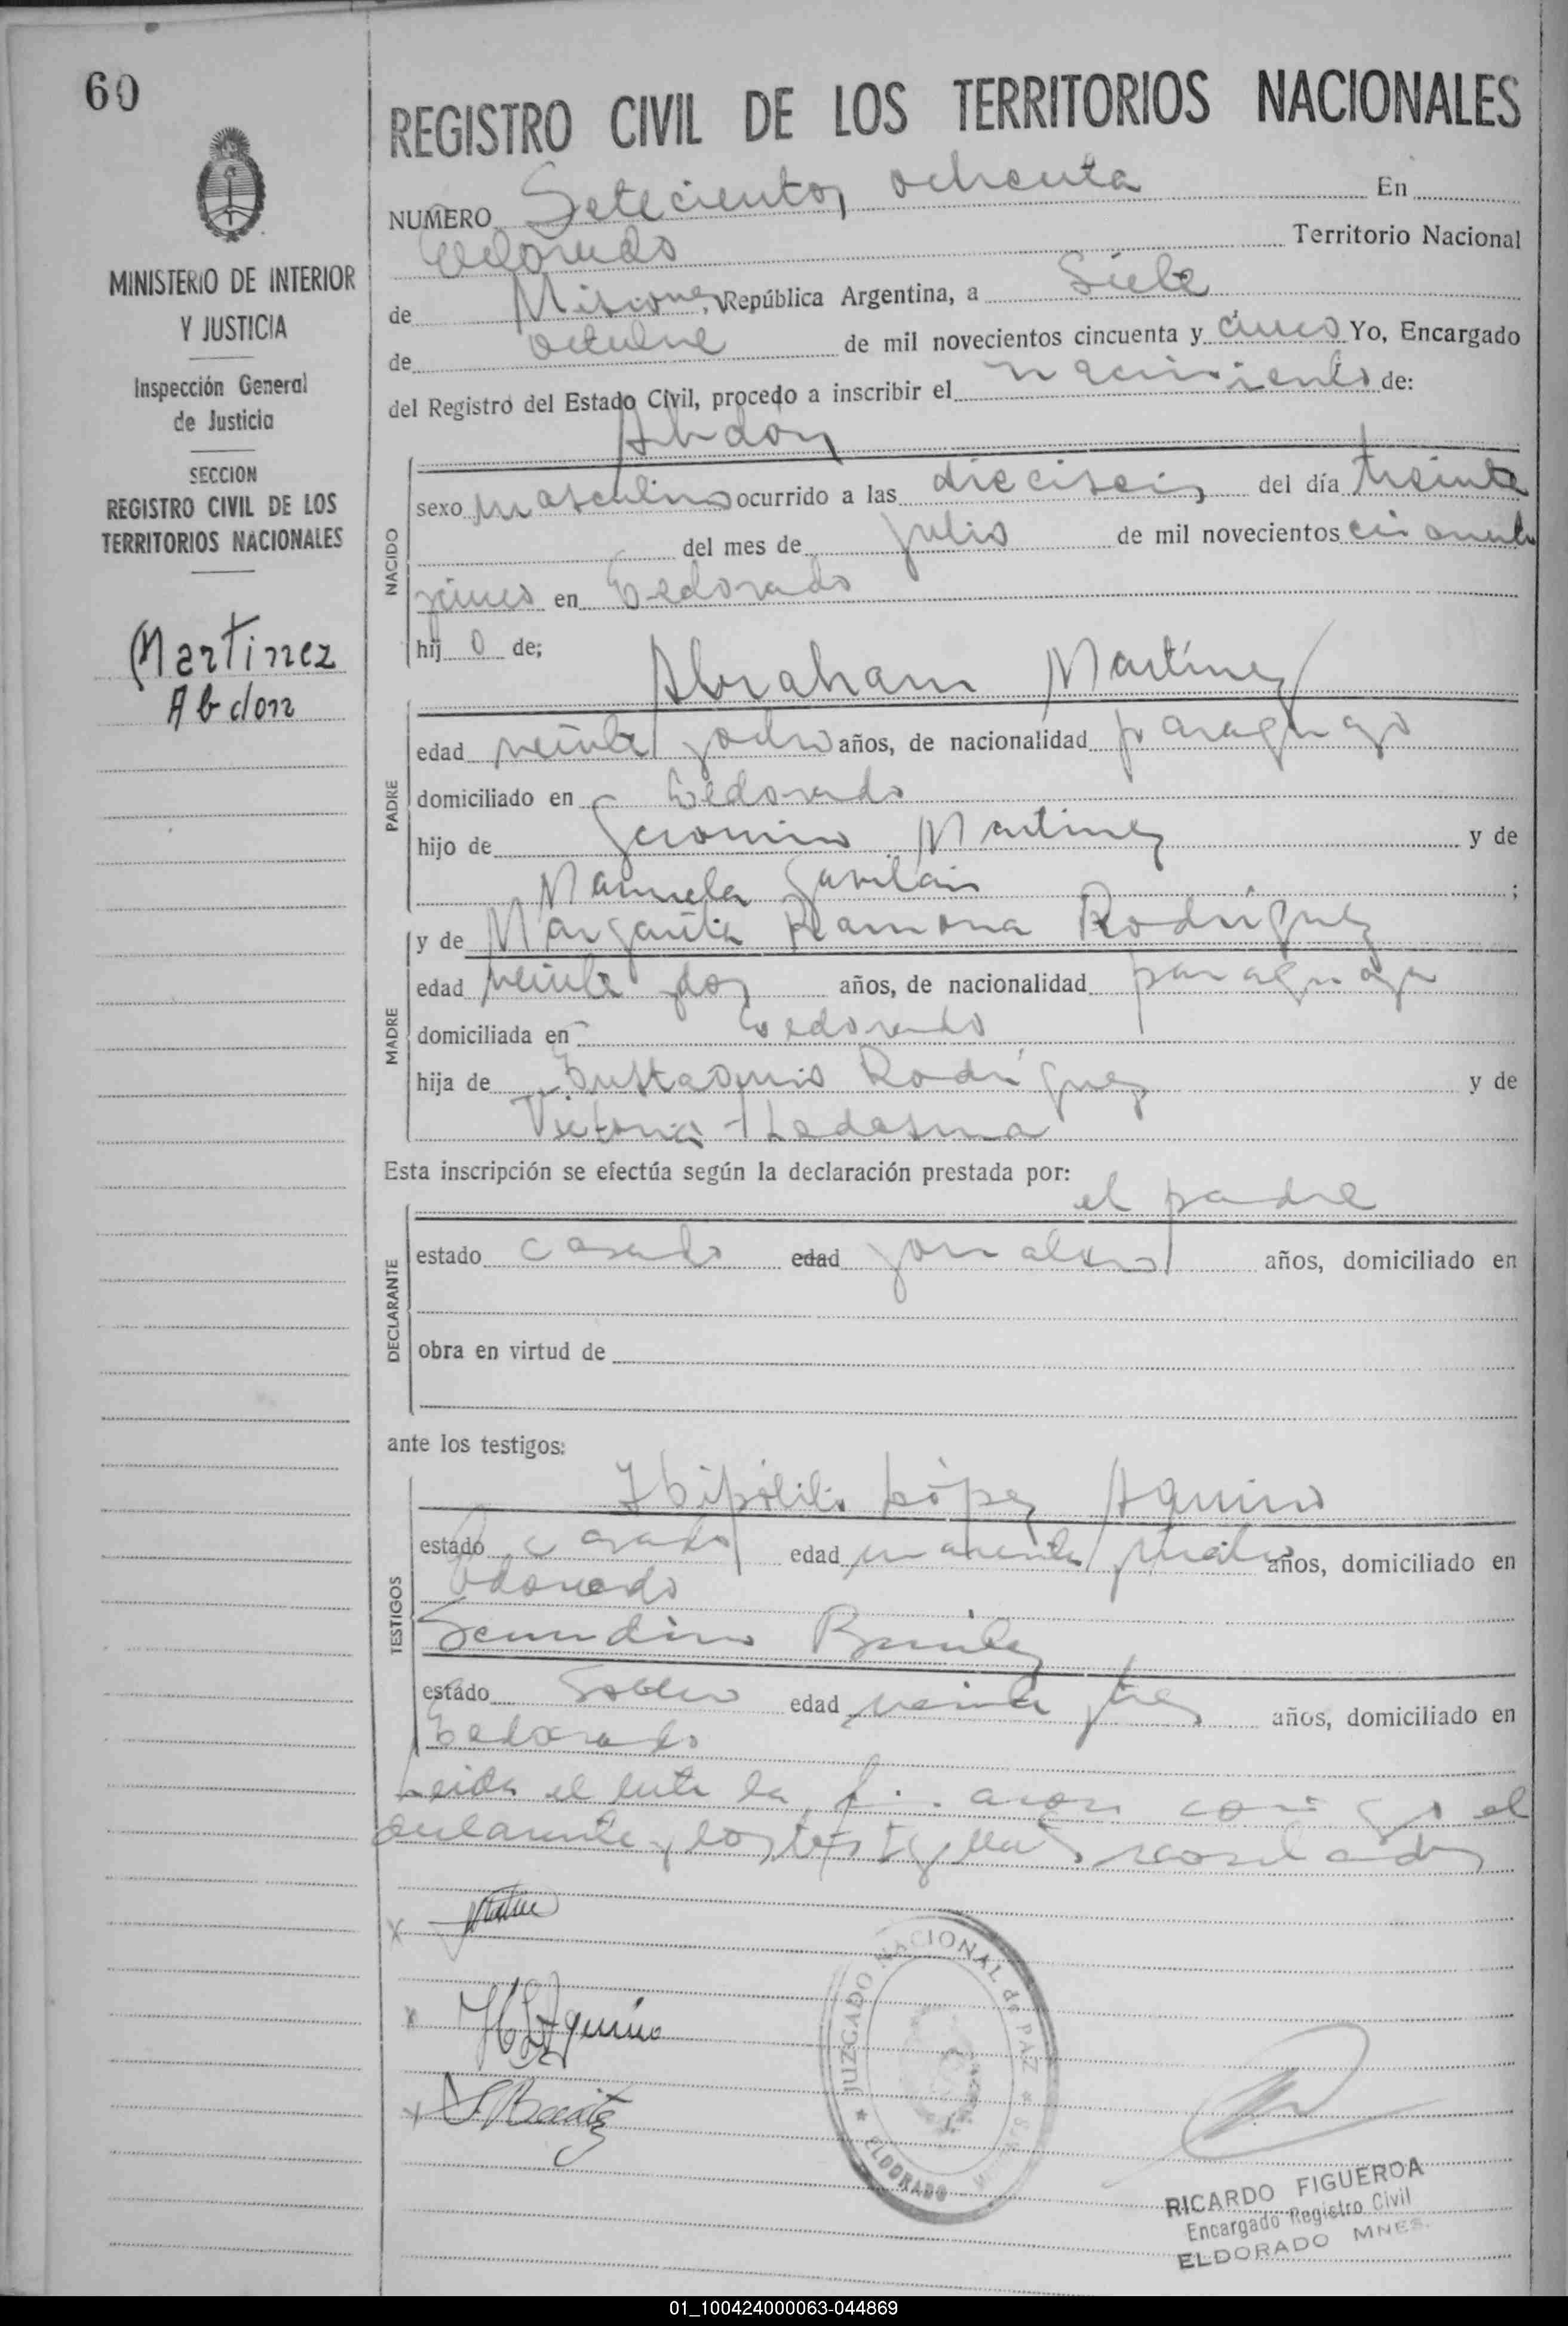 60
MINISTERIO DE INTERIOR
Y JUSTICIA
Inspección General
de Justicia
SECCION
REGISTRO CIVIL DE LOS
TERRITORIOS NACIONALES
Martinez
Abdon
REGISTRO CIVIL DE LOS TERRITORIOS NACIONALES
NUMERO Setecientos ochenta En
Eldorado Territorio Nacional
de Misiones, República Argentina, a Siete
de octubre de mil novecientos cincuenta y cinco Yo, Encargado
del Registro del Estado Civil, procedo a inscribir el nacimiento de:
Abdon
NACIDO
sexo masculino ocurrido a las dieciseis del día treinta
del mes de julio de mil novecientos cincuenta
y cinco en Eldorado
hij o de;
Abraham Martínez
PADRE
edad veinte y ocho años, de nacionalidad paraguayo
domiciliado en Eldorado
hijo de Geronimo Martinez y de
Manuela Gavilán ;
MADRE
y de Margarita Ramona Rodríguez
edad veinte y dos años, de nacionalidad paraguaya
domiciliada en Eldorado
hija de Eustaquio Rodríguez y de
Victoria Ledesma
Esta inscripción se efectúa según la declaración prestada por:
el padre
DECLARANTE
estado casado edad jornalero años, domiciliado en
obra en virtud de
ante los testigos:
Hipólito López Aquino
TESTIGOS
estado casado edad cuarenta y años, domiciliado en
Eldorado
Secundino Benitez
estado soltero edad veinte y tres años, domiciliado en
Eldorado
Leida el acta la conmigo el
declarante y los testigos
Aquino
S. Benitez
JUZGADO NACIONAL de PAZ
ELDORADO
RICARDO FIGUEROA
Encargado Registro Civil
ELDORADO MNES.
01_100424000063-044869